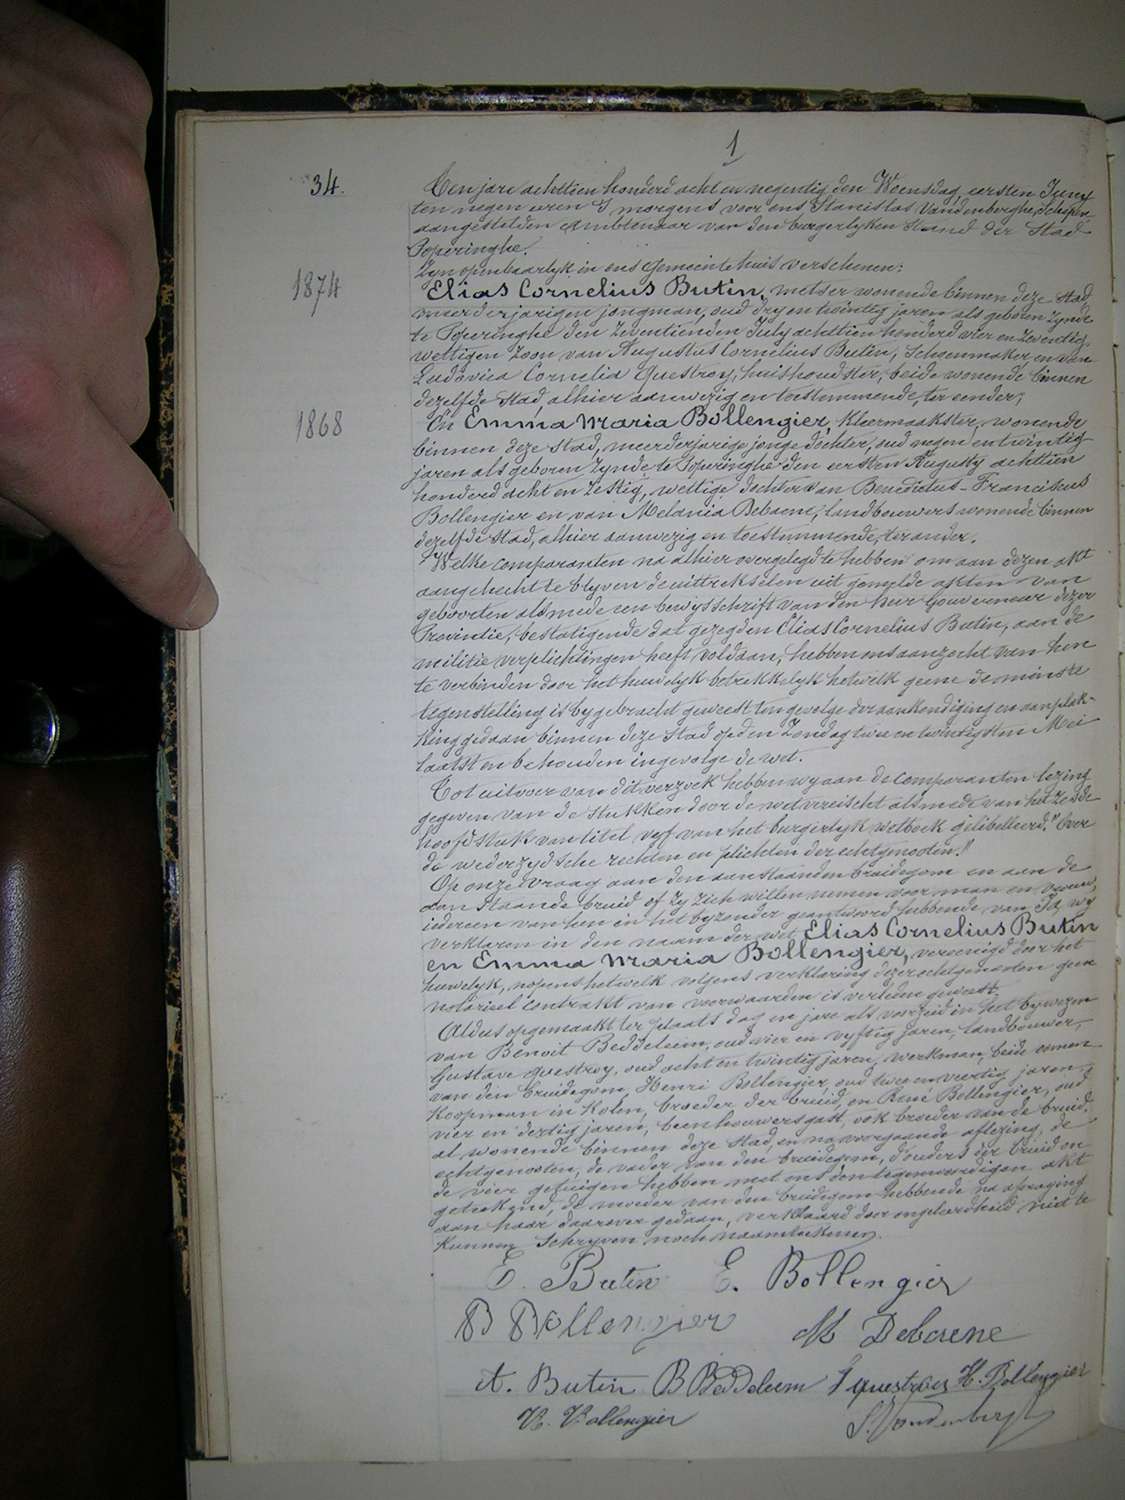 1
34.
Ten jare achttien honderd acht en negentig den Woensdag eersten Juny
ten negen uren 's morgens voor ons Stanislas Vandenberghe, Schepen
aangestelden Ambtenaar van den burgerlyken Stand der Stad
Poperinghe.
Zyn openbaarlyk in ons Gemeentehuis verschenen:
1874
Elias Cornelius Butin, metser wonende binnen deze Stad,
meerderjarigen jongman, oud dry en twintig jaren als geboren zynde
te Poperinghe den zeventienden July achttien honderd vier en zeventig,
wettigen zoon van Augustus Cornelius Butin, Schoenmaker en van
Ludovica Cornelia Questroy, huishoudster, beide wonende binnen
dezelfde Stad, alhier aanwezig en toestemmende, ter eender;
1868
En Emma Maria Bollengier, kleermaakster, wonende
binnen deze Stad, meerderjarige jonge dochter, oud negen en twintig
jaren als geboren zynde te Poperinghe den eersten Augusty achttien
honderd acht en zestig, wettige dochter van Benedictus-Franciskus
Bollengier en van Melania Debaene, landbouwers wonende binnen
dezelfde Stad, alhier aanwezig en toestemmende, ter ander.
Welke comparanten na alhier overgelegd te hebben om aan dezen akt
aangehecht te blyven de uittrekselen uit gemelde akten van
geboorten alsmede een bewysschrift van den heer Gouverneur dezer
Provintie, bestatigende dat gezegden Elias Cornelius Butin, aan de
militie verplichtingen heeft voldaan, hebben ons aanzocht van hen
te verbinden door het huwelyk betrekkelyk hetwelk geene de minste
tegenstelling is bygebracht geweest ten gevolge der aankondiging en aanplak-
king gedaan binnen deze Stad op den Zondag twee en twintigsten Mei
laatst en behouden ingevolge de wet.
Tot uitvoer van dit verzoek hebben wy aan de comparanten lezing
gegeven van de stukken door de wet vereischt alsmede van het zesde
hoofdstuk van titel vyf van het burgerlyk wetboek gelibelleerd: "Over
de wederzydsche rechten en plichten der echtgenooten."
Op onze vraag aan den aanstaanden bruidegom en aan de
aanstaande bruid of zy zich willen nemen voor man en vrouw,
iedereen van hen in het byzonder geantwoord hebbende van Ja, wy
verklaren in den naam der wet Elias Cornelius Butin
en Emma Maria Bollengier, vereenigd door het
huwelyk, nopens hetwelk volgens verklaring dezer echtgenooten geen
notarieel contrakt van voorwaarden is verleden geweest.
Aldus opgemaakt ter plaats dag en jare als voorzeid in het bywezen
van Benoit Beddeleem, oud vier en vyftig jaren, landbouwer,
Gustave Questroy, oud acht en twintig jaren, werkman, beide oomen
van den bruidegom, Henri Bollengier, oud twee en veertig jaren,
koopman in kolen, broeder der bruid, en René Bollengier, oud
vier en dertig jaren, beenhouwersgast, ook broeder van de bruid,
al wonende binnen deze Stad, en na voorgaande aflezing, de
echtgenooten, de vader van den bruidegom, d'ouders der bruid en
de vier getuigen hebben met ons den tegenwoordigen akt
geteekend, de moeder van den bruidegom hebbende na afvraging
aan haar daarover gedaan, verklaard door ongeleerdheid niet te
kunnen schryven noch naamteekenen.
E. Butin E. Bollengier
B Bollengier M Debaene
A. Butin B Beddeleem G questroy H. Bollengier
R. Bollengier S. Vandenberghe